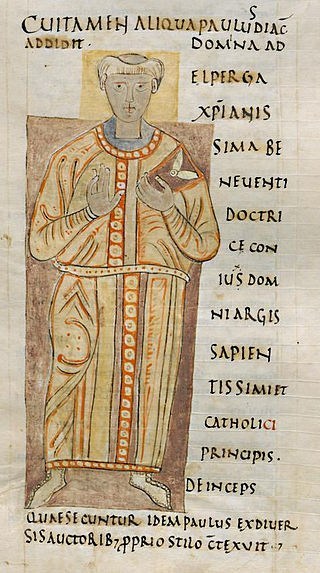 CUITAMEN ALIQUA PAULUS DIAC̄
ADDIDIT · DOMNA AD
ELPERGA
XP̄IANIS
SIMA BE
NEVENTI
DOCTRI
CE CON
IUGIS DOM
NI ARGIS
SAPIEN
TISSIMI ET
CATHOLICI
PRINCIPIS ·
DEINCEPS
QUAE SECUNTUR IDEM PAULUS EX DIVER
SIS AUCTORIB; PROPRIO STILO CONTEXUIT ·